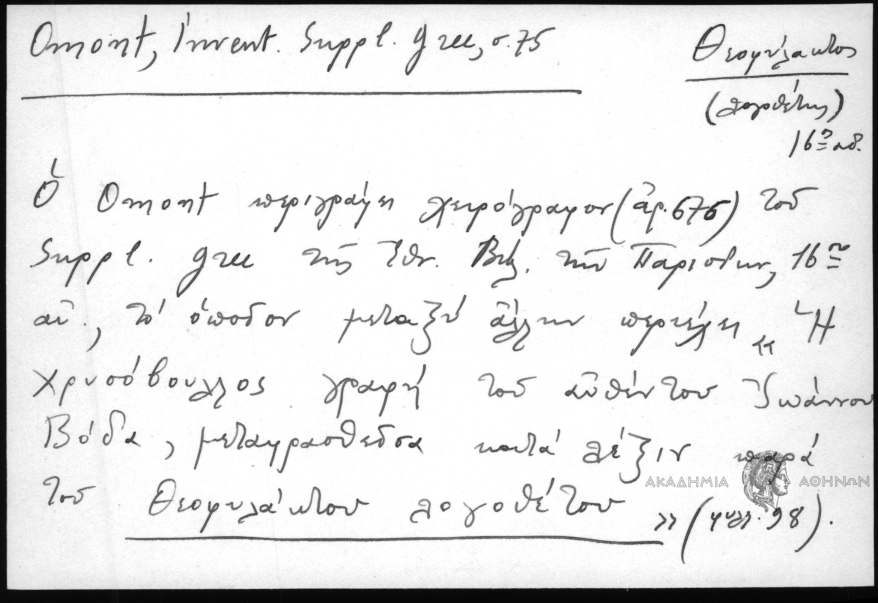 Omont, Invent. Suppl. grec, σ. 75
Θεοφύλακτος
(λογοθέτης)
16ου αἰ.
Ὁ Omont περιγράφει χειρόγραφον (ἀρ. 676) τοῦ
Suppl. grec τῆς Ἐθν. Βιβ. τῶν Παρισίων, 16ου
αἰ., τὸ ὁποῖον μεταξὺ ἄλλων περιέχει « Ἡ
χρυσόβουλλος γραφή τοῦ αὐθέντου Ἰωάννου
Βόδα, μεταγρασθεῖσα κατά λέξιν παρά
ΑΚΑΔΗΜΙΑ ΑΘΗΝΩΝ
τοῦ Θεοφυλάκτου λογοθέτου » (φυλ. 98).